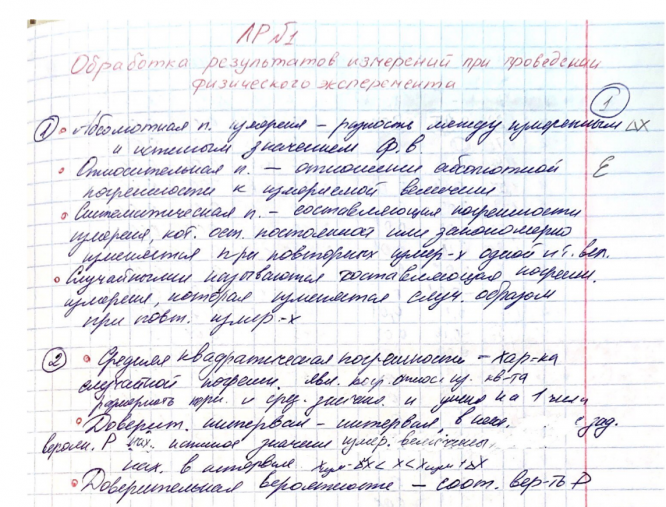 ЛР №1
Обработка результатов измерений при проведении
физического эксперемента
1
1 • Абсолютная п. измерения – разность между измеренным ΔX
и истенным значением ф.в
• Относительная п. – отношение абсолютной E
погрешности к измеряемой величении
• Систематическая п. – составляющая погрешности
измерения, кот. ост. постоянная или закономерно
изменяется при повторных измер-х одной и т. вел.
• Случайными называются составляющая погрешн.
измерения, которая изменяется случ. образом
при повт. измер-х
2 • Средняя квадратическая погрешность – хар-ка
случайной погрешн. явл. кв-та
и сред. значения и на 1 числа
• Доверит. интервал – интервал, в зад.
вероятн. P нах. истинное значение измер. величины,
нах. в интервале - ΔX < X < + ΔX
• Доверительная вероятность – соот. вер-ть P